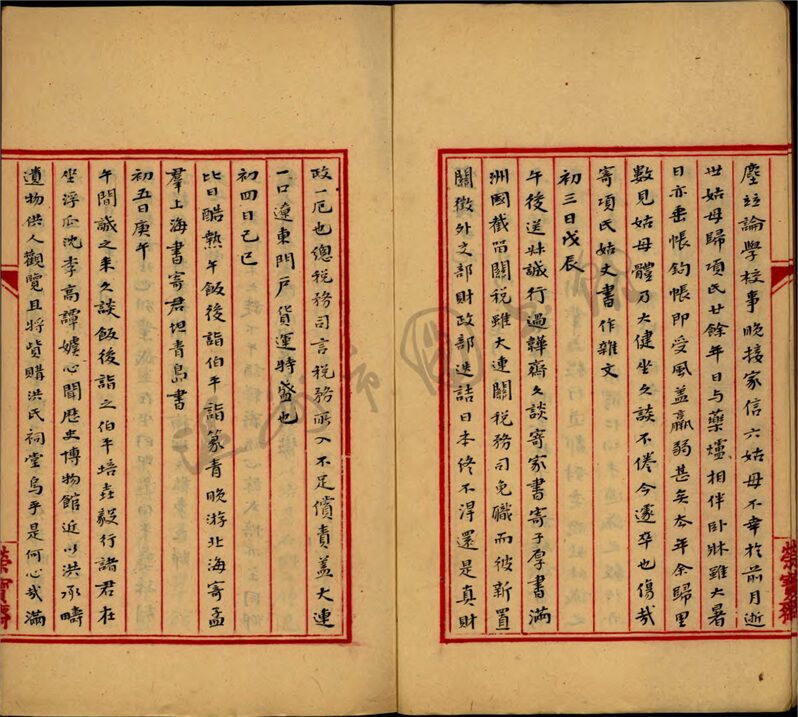 塵並論學校事晚接家信六姑母不幸於前月逝
世姑母歸項氏廿餘年日與藥爐相伴卧牀雖大暑
日亦垂帳鉤帳即受風蓋羸弱甚矣去年余歸里
數見姑母體乃大健坐久談不倦今遂卒也傷哉
寄項氏姑丈書作雜文
初三日戊辰
午後送牀誠行過韡齋久談寄家書寄子厚書滿
洲國截留關稅雖大連關稅務司免職而彼新置
關徵外交部財政部迭詰日本終不得還是真財
政一厄也總稅務司言稅務所入不足償責蓋大連
一口遼東門戶貨運特盛也
初四日己巳
比日酷熱午飯後詣伯平詣篆青晚游北海寄孟
羣上海書寄君坦青島書
初五日庚午
午間誠之來久談飯後詣之伯平培垚毅行諸君在
坐浮瓜沈李高譚嬱心聞歷史博物館近以洪承疇
遺物供人觀覽且將貲購洪氏祠堂烏乎是何心哉滿
榮寶齋
榮寶齋